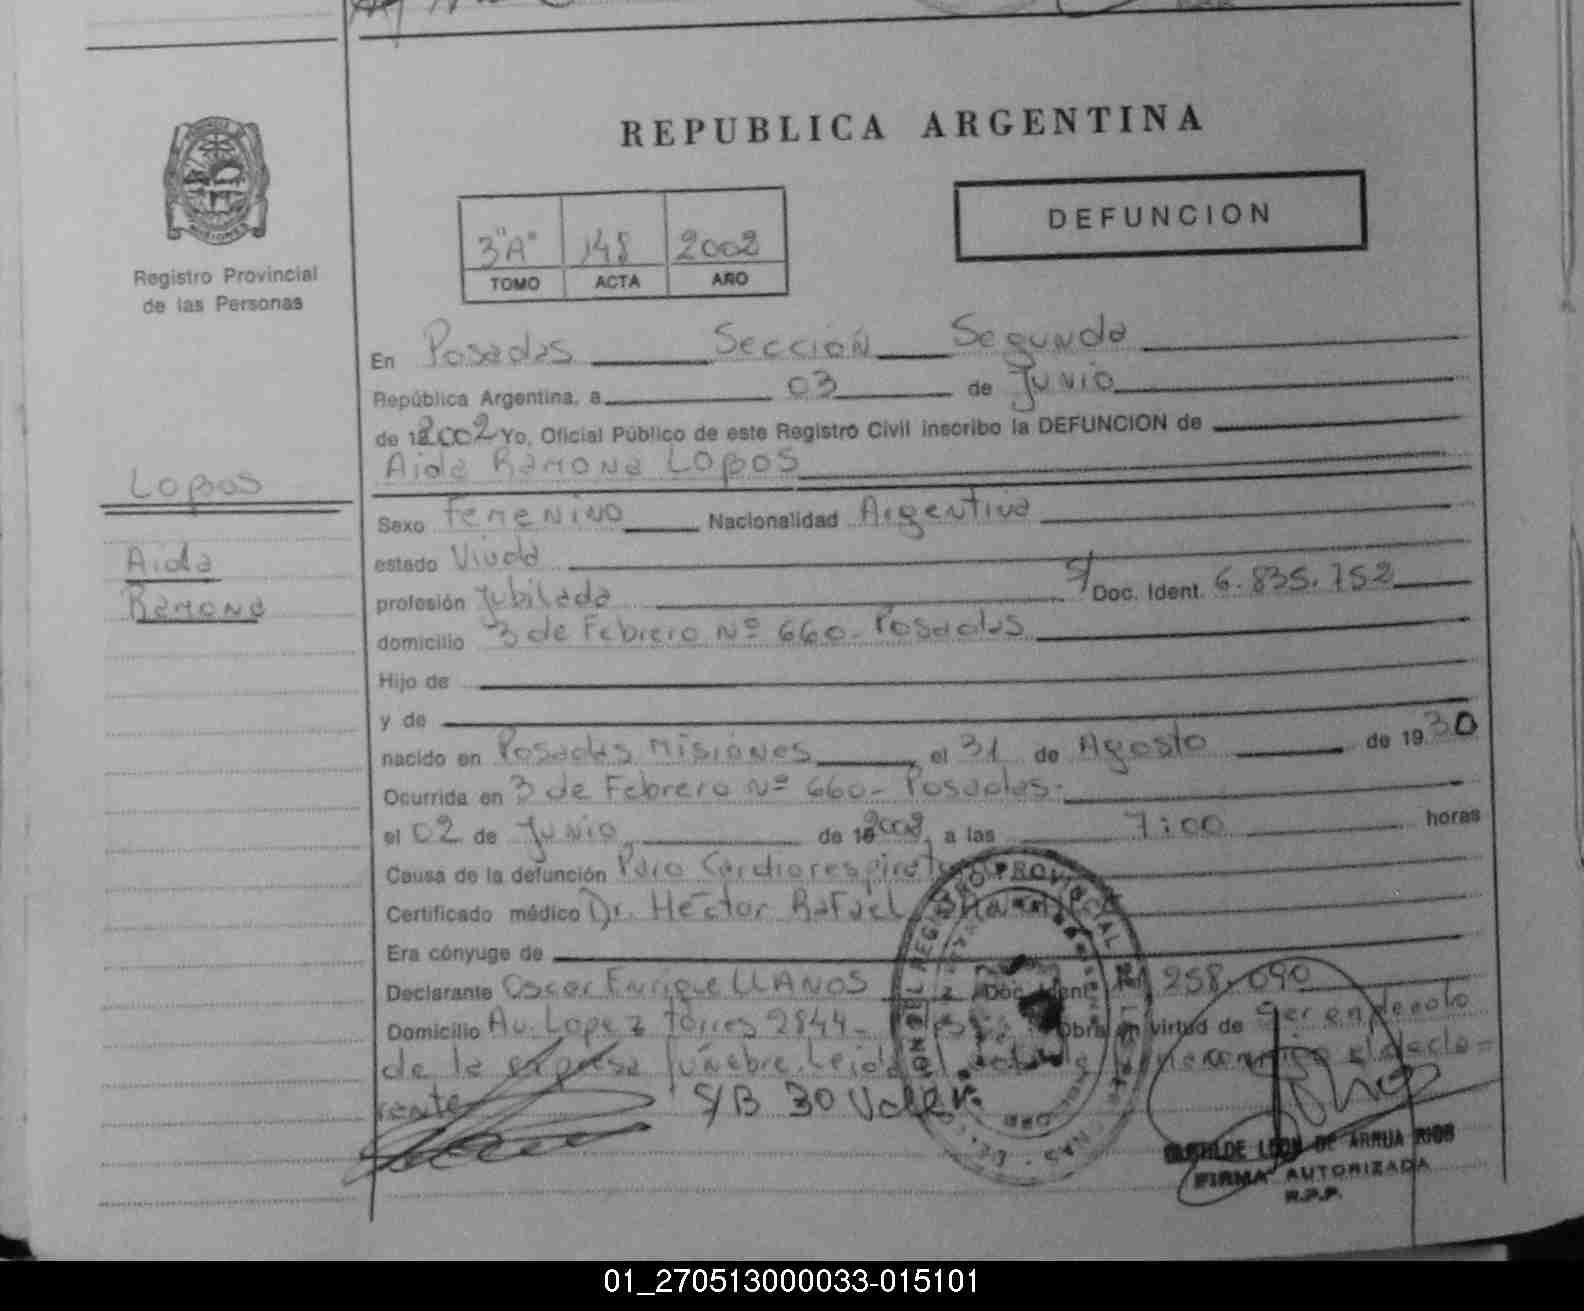 REPUBLICA ARGENTINA
DEFUNCION
3"A" 148 2002
TOMO ACTA AÑO
Registro Provincial
de las Personas
En Posadas Sección Segunda
República Argentina, a 03 de Junio
de 2002 Yo, Oficial Público de este Registro Civil inscribo la DEFUNCION de
Aida Ramona LOBOS
LOBOS
Aida
Ramona
Sexo Femenino Nacionalidad Argentina
estado Viuda
profesión Jubilada S/ Doc. Ident. 6.835.752
domicilio 3 de Febrero Nº 660- Posadas
Hijo de
y de
nacido en Posadas Misiones, el 31 de Agosto de 1930
Ocurrida en 3 de Febrero Nº 660- Posadas-
el 02 de Junio, de 2002, a las 7:00 horas
Causa de la defunción Paro Cardiorespirat
Certificado médico Dr. Héctor Rafael
Era cónyuge de
Declarante Oscar Enrique LLANOS Doc. Ident. 258.090
Domicilio Av. Lopez Torres 2844- Obra en virtud de ser empleado
de la empresa fúnebre. Leida el acta la conmigo el decla-
rante S/B 30 Vale
REGISTRO PROVINCIAL
CLOTILDE LEON DE ARRUA RIOS
FIRMA AUTORIZADA
R.P.P.
01_270513000033-015101